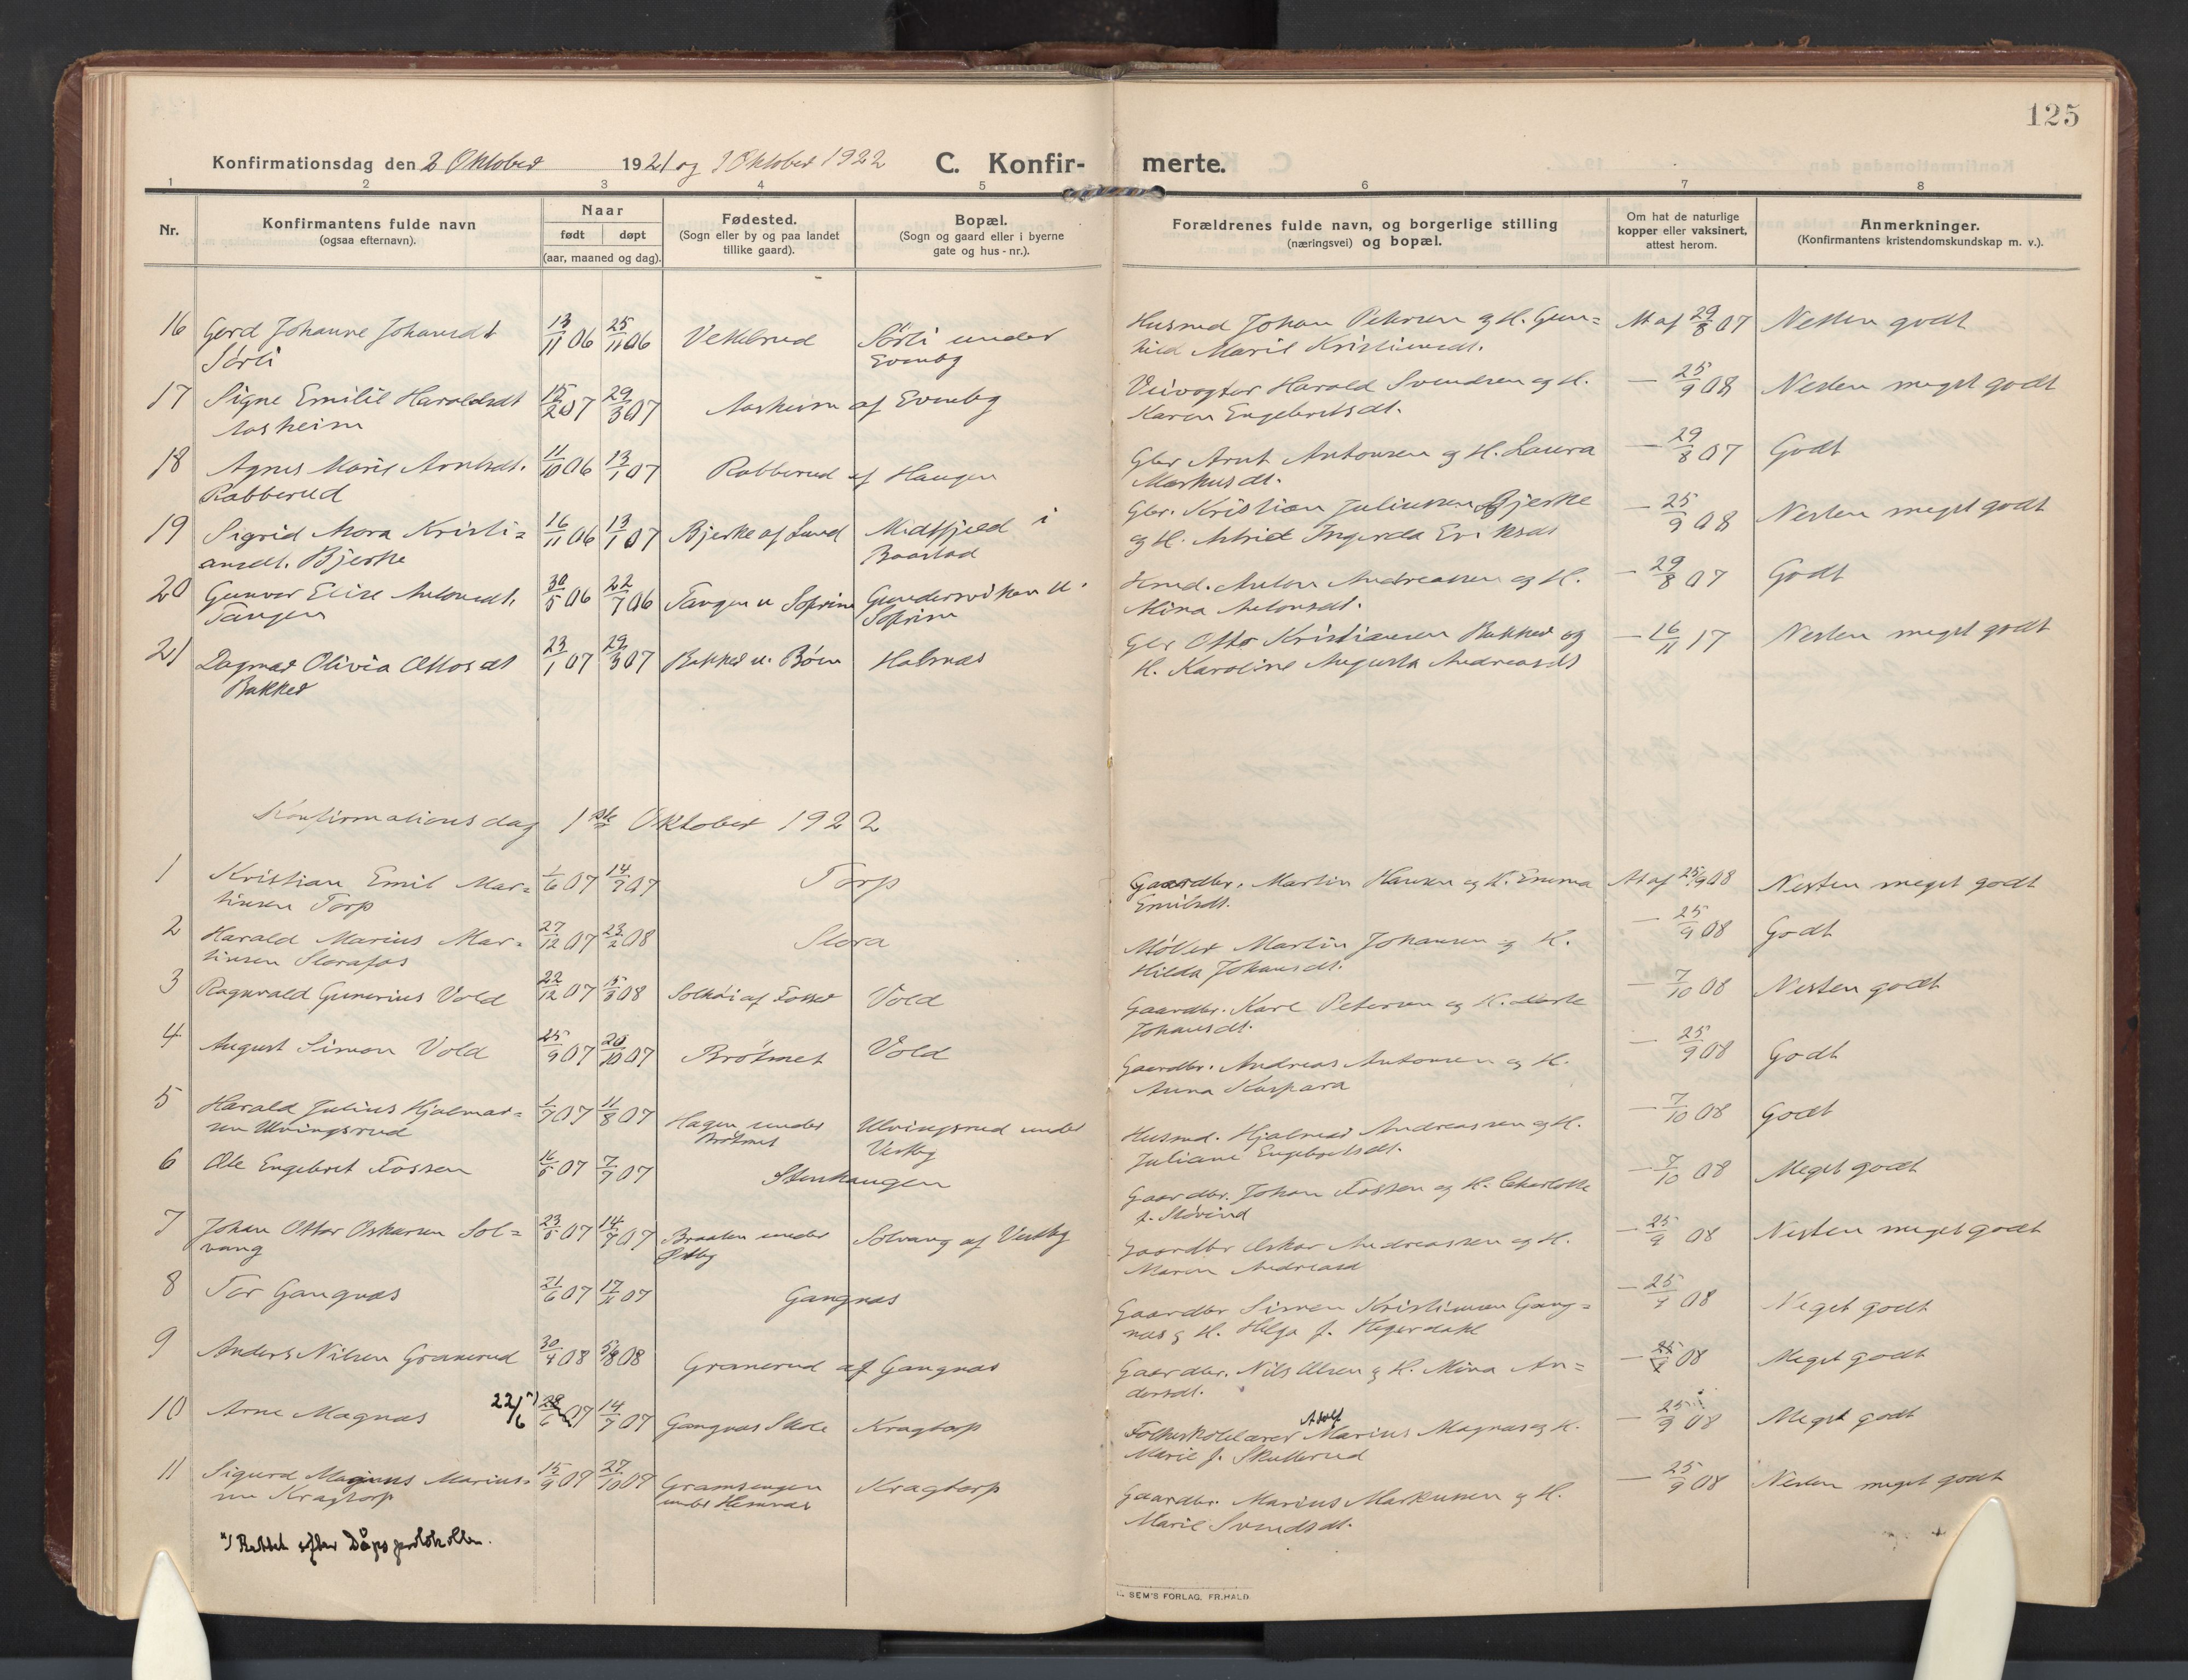 125
Konfirmationsdag den 2 Oktober 1921 og 1 Oktober 1922 C. Konfir- merte.
1 2 3 4 5 6 7 8
Nr.
Konfirmantens fulde navn
(ogsaa efternavn).
Naar
født døpt
(aar, maaned og dag).
Fødested.
(Sogn eller by og paa landet
tillike gaard).
Bopæl.
(Sogn og gaard eller i byerne
gate og hus-nr.).
Forældrenes fulde navn, og borgerlige stilling
(næringsvei) og bopæl.
Om hat de naturlige
kopper eller vaksinert,
attest herom.
Anmerkninger.
(Konfirmantens kristendomskundskap m. v.).
16 Gerd Johanne Johansdt 13/11 06 25/11 06 Vettebrud Sörli under Husmd Johan Petersen og H. Gun= At af 29/8 07 Nesten godt
Sörli Evenby hild Marie Kristiansdt.
17 Signe Emilie Haraldsdt 15/2 07 29/3 07 Aasheim af Evenby Veivogter Harald Svendsen og H. — 25/9 08 Nesten meget godt
Aasheim Karen Engebretsdt.
18 Agnes Marie Arntsdt. 11/10 06 13/1 07 Rabberud af Haugen Gbr Arnt Antonsen og H. Laura — 29/8 07 Godt
Rabberud Markusdt.
19 Sigrid Mora Kristi= 16/11 06 13/1 07 Bjerke af Lund Midtfjeld i Gbr. Kristian Juliussen Bjerke — 25/9 08 Nesten meget godt
ansdt. Bjerke Baastad og H. Astrid Ingerda Eriksdt
20 Gunvor Elise Antonsdt. 30/5 06 22/7 06 Tangen u Soprim Gundersviken u. Hmd. Anton Andreassen og H. — 29/8 07 Godt
Tangen Soprim Mina Antonsdt.
21 Dagmar Olivia Ottosdt 23/1 07 29/3 07 Bakker u. Böen Halnæs Gbr Otto Kristiansen Bakker og — 16/11 17 Nesten meget godt
Bakker H. Karoline Augusta Andreasdt
Konfirmationsdag 1ste Oktober 1922
1 Kristian Emil Mar= 1/6 07 14/7 07 Torp Gaardbr. Martin Hansen og H. Emma At af 25/9 08 Nesten meget godt
tinsen Torp Emilsdt.
2 Harald Marius Mar= 27/12 07 23/2 08 Slora Möller Martin Johansen og H. — 25/9 08 Godt
tinsen Slorafos Hilda Johansdt.
3 Ragnvald Gunerius Vold 22/12 07 08 Solhöi af Fosser Vold Gaardbr. Karl Petersen og H. — 7/10 08 Nesten godt
Johansdt.
4 August Simon Vold 25/9 07 20/10 07 Brötmet Vold Gaardbr. Andreas Antonsen og H. — 25/9 08 Godt
Anna Kaspara
5 Harald Julius Hjalmar= 1/7 07 11/8 07 Hagen under Ulvingsrud under Husmd. Hjalmar Andreassen og H. — 7/10 08 Godt
sen Ulvingsrud Brötmet Vestby Juliane Engebretsdt.
6 Ole Engebret Fossen 16/5 07 7/7 07 Stenhaugen Gaardbr. Johan Fossen og H. Charlotte — 7/10 08 Meget godt
f. Slövind
7 Johan Ottar Oskarsen Sol= 23/5 07 14/7 07 Braaten under Solvang af Vestby Gaardbr Oskar Andreassen og H. — 25/9 08 Nesten meget godt
vang Østby Maren Andreasd
8 Tor Gangnæs 21/6 07 17/11 07 Gangnæs Gaardbr Simen Kristiansen Gang= — 25/9 08 Meget godt
næs og H. Helga f. Hegerdahl
9 Anders Nilsen Granerud 30/4 08 5/8 08 Granerud af Gangnæs Gaardbr. Nils Olsen og H. Mina An= — 25/9 08 Meget godt
dersdt.
10 Arne Magnæs 22/6 *) 28/6 07 14/7 07 Gangnæs Skole Kragtorp Folkeskolelærer Adolf Marius Magnæs og H. — 25/9 08 Meget godt
Marie f. Skullerud
11 Sigurd Magnus Marius= 15/9 07 27/10 07 Gramsengen Kragtorp Gaardbr. Marius Markussen og H. — 25/9 08 Nesten meget godt
sen Kragtorp under Hemnæs Marie Svendsdt.
*) Rettet efter Dåpsprotokollen.
SEM'S FORLAG. FR. HALD